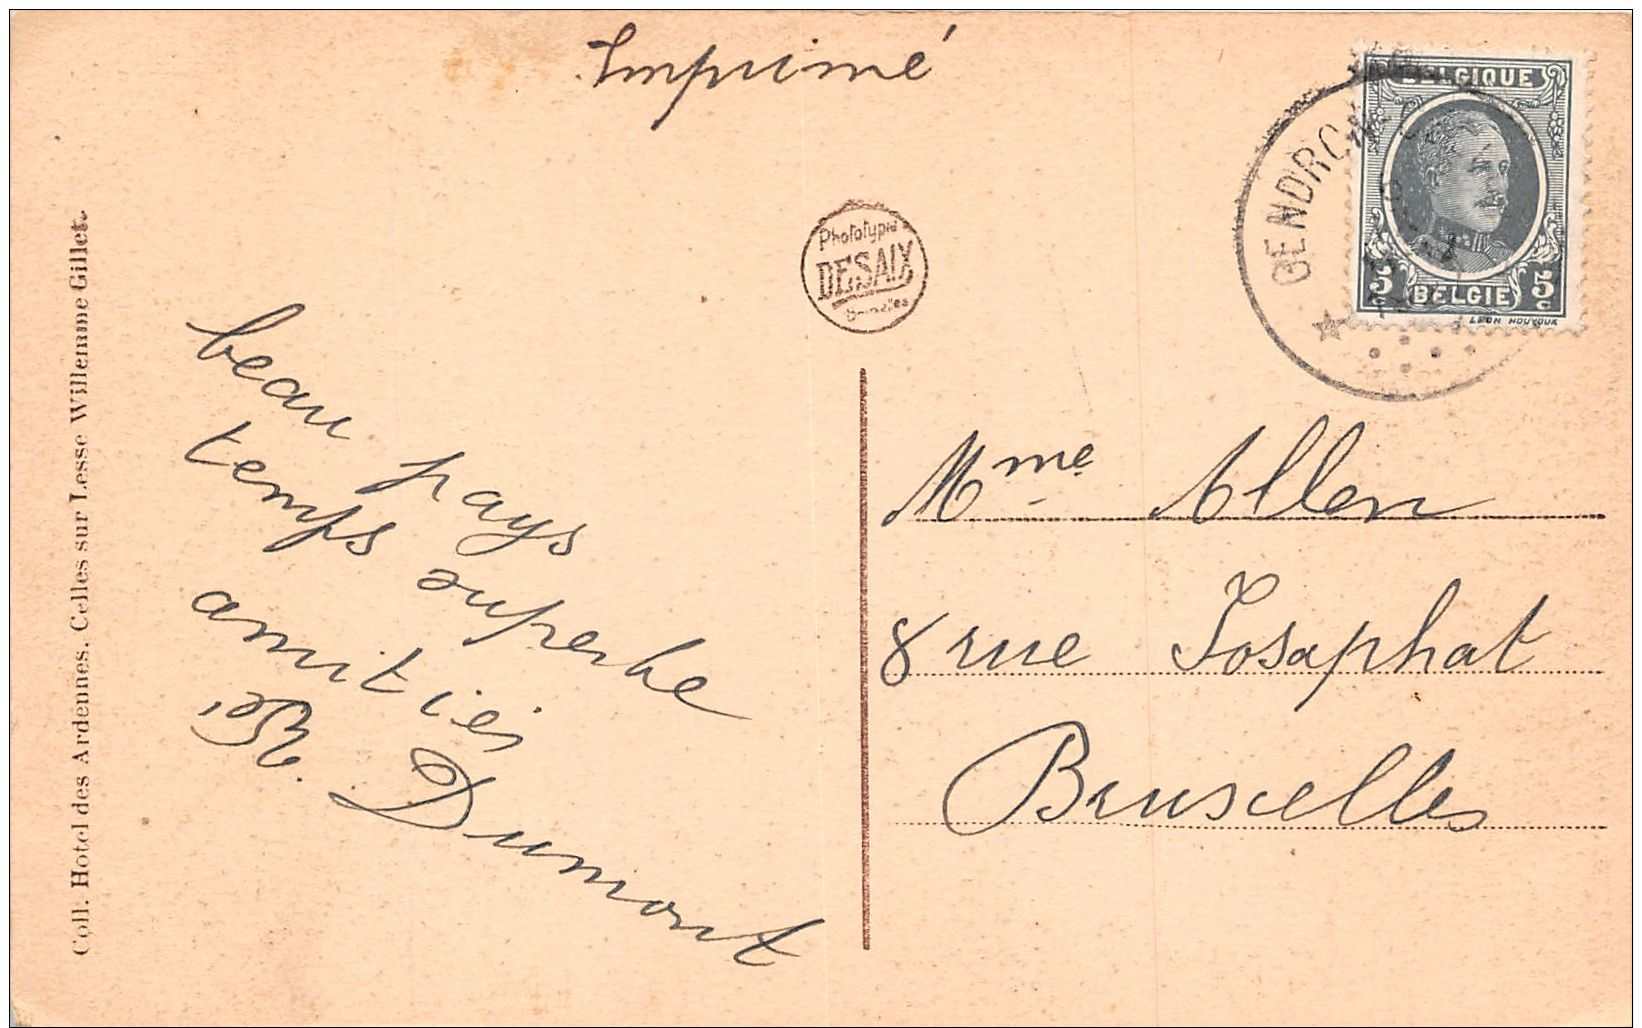 Imprimé
BELGIQUE
5 BELGIE 5
c c
GENDRON
Phototypie
DESAIX
Bruxelles
Coll. Hotel des Ardennes. Celles sur Lesse Willemme Gillet.
beau pays
temps superbe
amitiés
Dumont
Mme Allen
8 rue Josaphat
Bruxelles